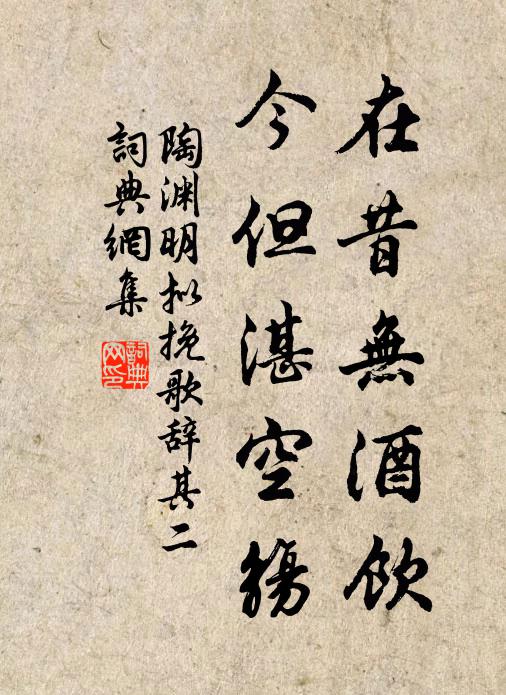 在昔無酒飲
今但湛空觴
陶渊明拟挽歌辞其二
詞典網集
詞典网印